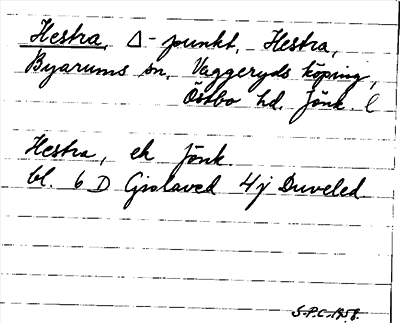 Hestra, Δ-punkt, Hestra,
Byarums sn, Vaggeryds köping,
Östbo hd. Jönk. l
Hestra, ek Jönk
bl. 6 D Gislaved 4j Duveled.
S.P.C. 1958.